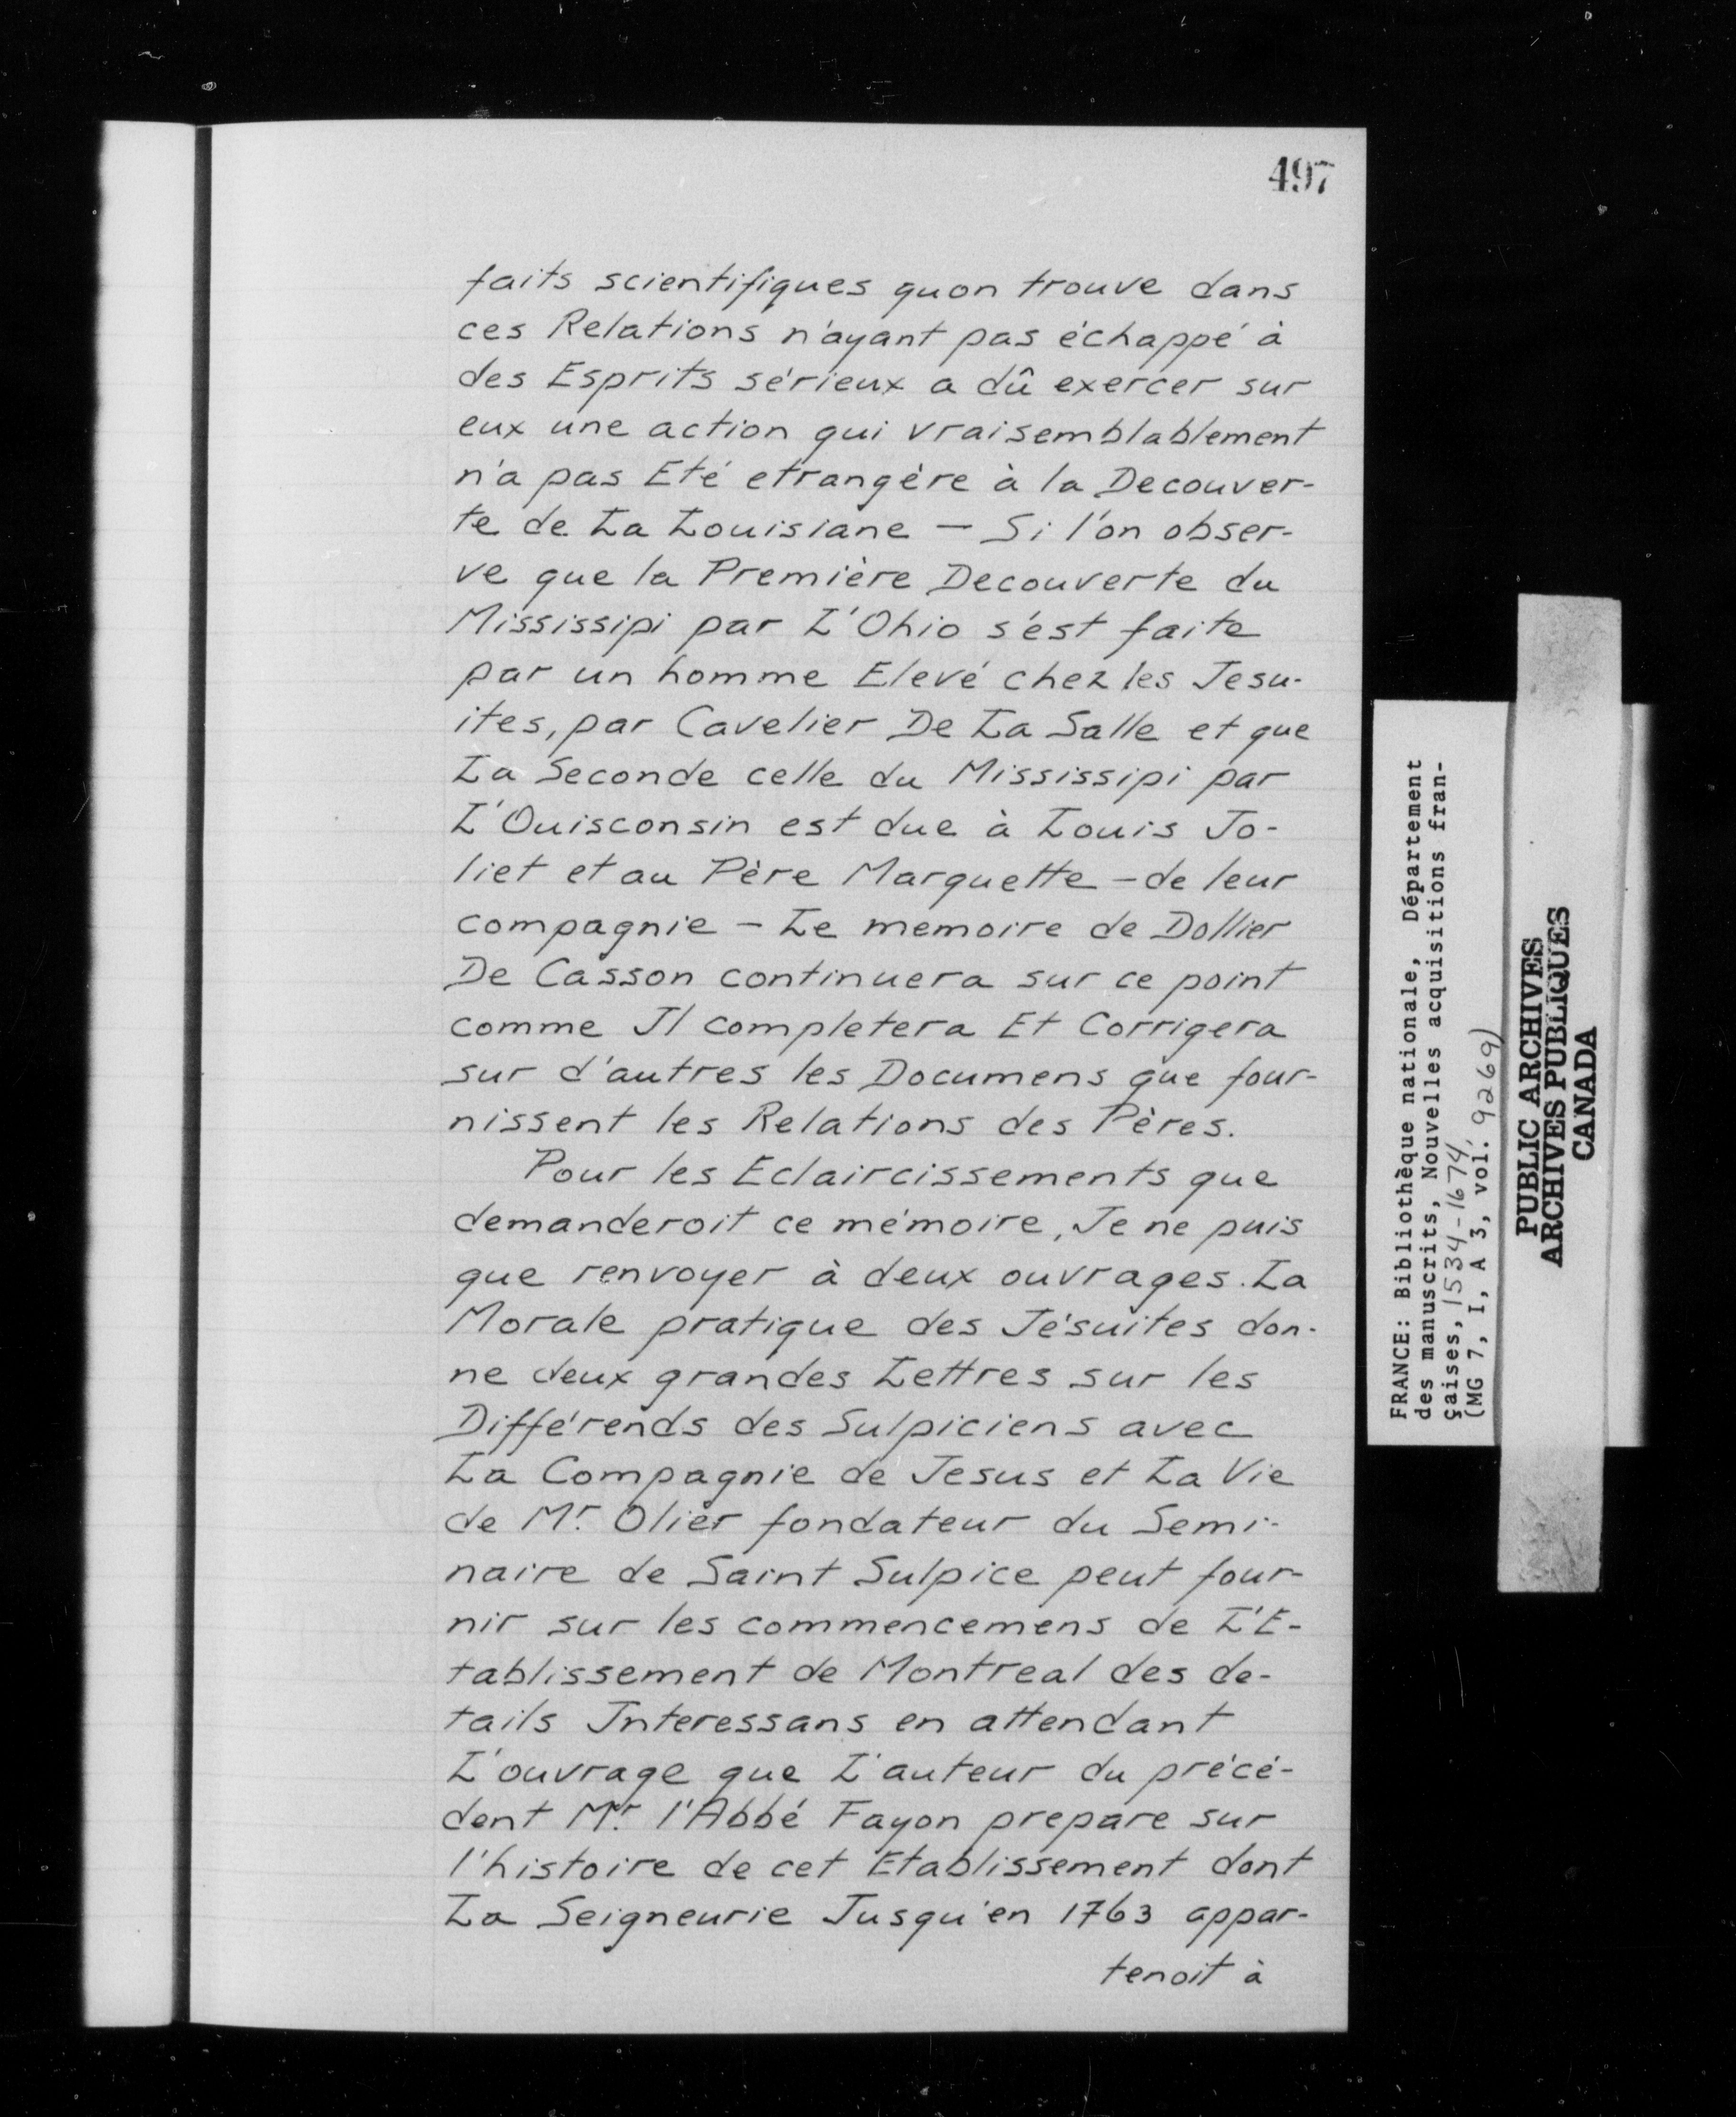 497
faits scientifiques quon trouve dans
ces Relations n'ayant pas échappé à
des Esprits sérieux a dû exercer sur
eux une action qui vraisemblablement
n'a pas Eté etrangère à la Decouver-
te de La Louisiane — Si l'on obser-
ve que la Première Decouverte du
Mississipi par L'Ohio s'est faite
par un homme Elevé chez les Jesu-
ites, par Cavelier De La Salle et que
La Seconde celle du Mississipi par
L'Ouisconsin est due à Louis Jo-
liet et au Père Marquette - de leur
compagnie - Le memoire de Dollier
De Casson continuera sur ce point
comme Il completera Et Corrigera
sur d'autres les Documens que four-
nissent les Relations des Pères.
Pour les Eclaircissements que
demanderoit ce mémoire, Je ne puis
que renvoyer à deux ouvrages. La
Morale pratique des Jésuites don-
ne deux grandes Lettres sur les
Différends des Sulpiciens avec
La Compagnie de Jesus et La Vie
de Mr. Olier fondateur du Semi-
naire de Saint Sulpice peut four-
nir sur les commencemens de L'E-
tablissement de Montreal des de-
tails Interessans en attendant
L'ouvrage que L'auteur du précé-
dent Mr. l'Abbé Fayon prepare sur
l'histoire de cet Etablissement dont
La Seigneurie Jusqu'en 1763 appar-
tenoit à
FRANCE: Bibliothèque nationale, Département
des manuscrits, Nouvelles acquisitions fran-
çaises, 1534-1674,
(MG 7, I, A 3, vol. 9269)
PUBLIC ARCHIVES
ARCHIVES PUBLIQUES
CANADA